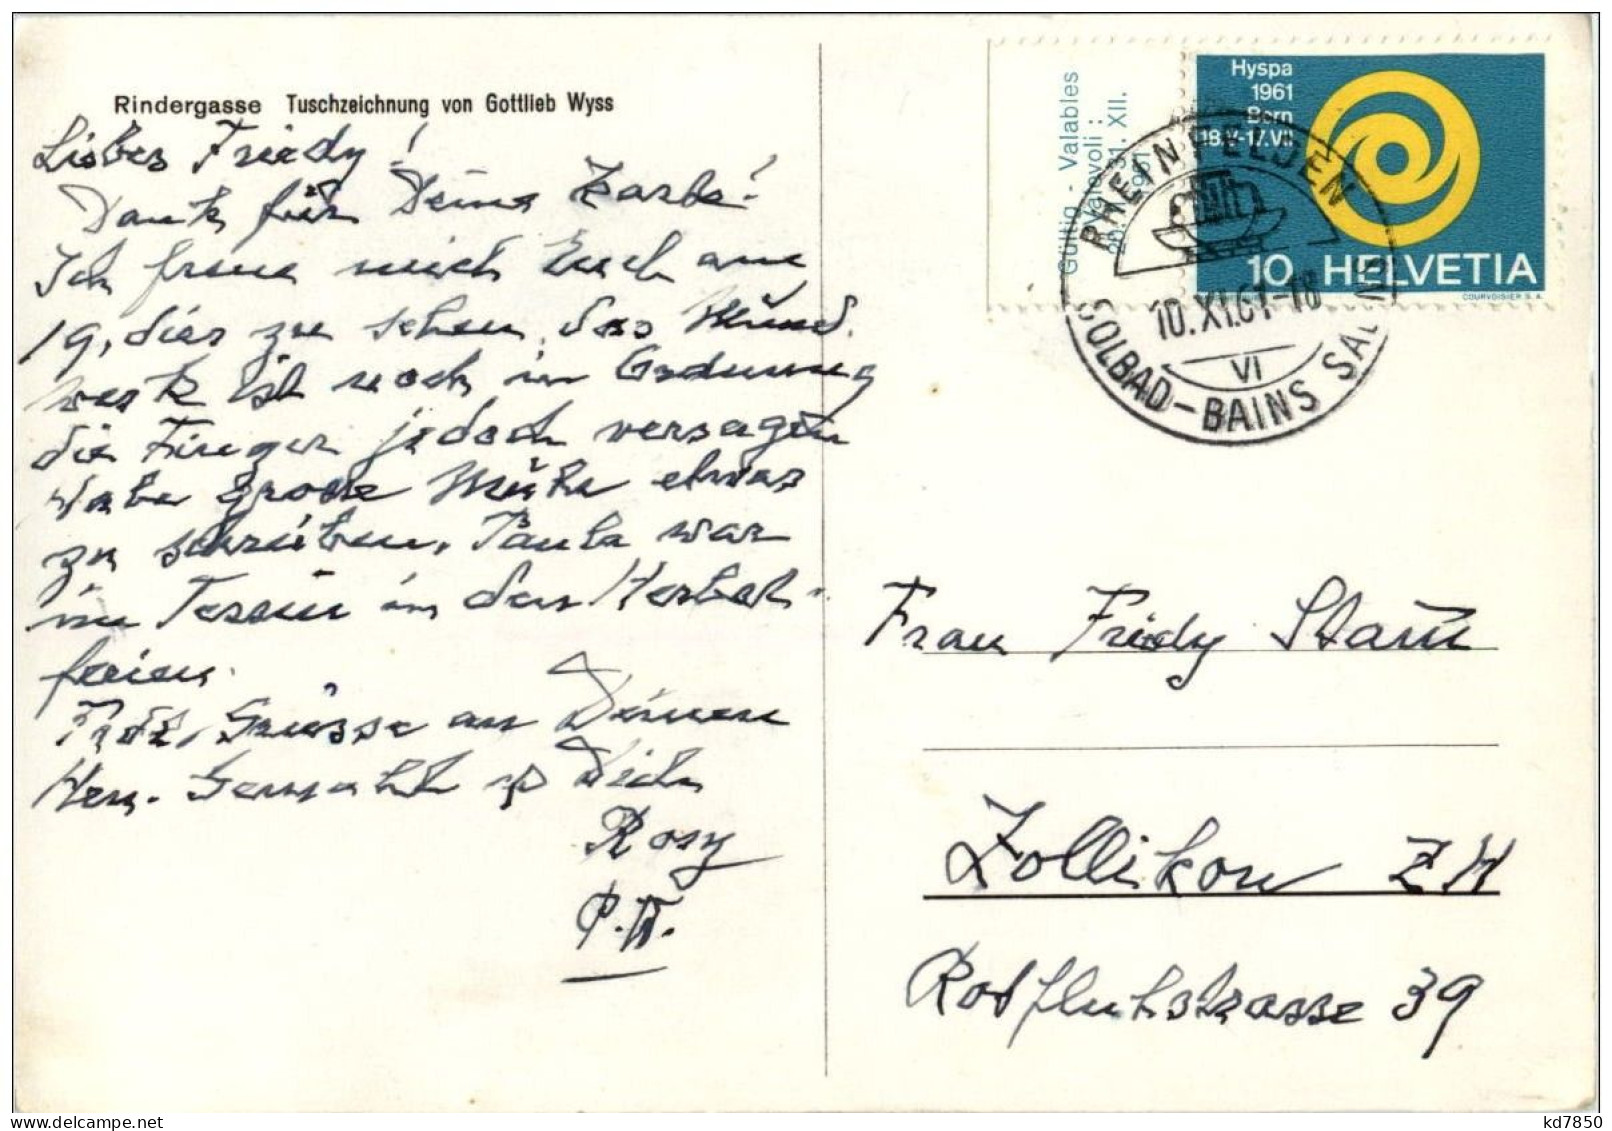 Rindergasse Tuschzeichnung von Gottlieb Wyss
Liebes Friedy!
Dank für Deine Karte!
Ich freue mich Euch am
19. dies zu sehen, das Mund.
werk ist noch in Ordnung
die Finger jedoch versagen
habe grosse Mühe etwas
zu schreiben. Paula war
im Tessin in den Herbst-
ferien.
Frdl. Grüsse an Deinen
Hern. Gemahl & Dich
Rosy
Gültig - Valables
Valevoli :
31. XII.
1961
Hyspa
1961
Bern
18.V-17.VII
10 HELVETIA
COURVOISIER S.A.
RHEINFELDEN
10.XI.61-18
VI
SOLBAD-BAINS SALINS
Frau Fridy Stam
Zollikon ZH
Rotfluhstrasse 39
kd7850